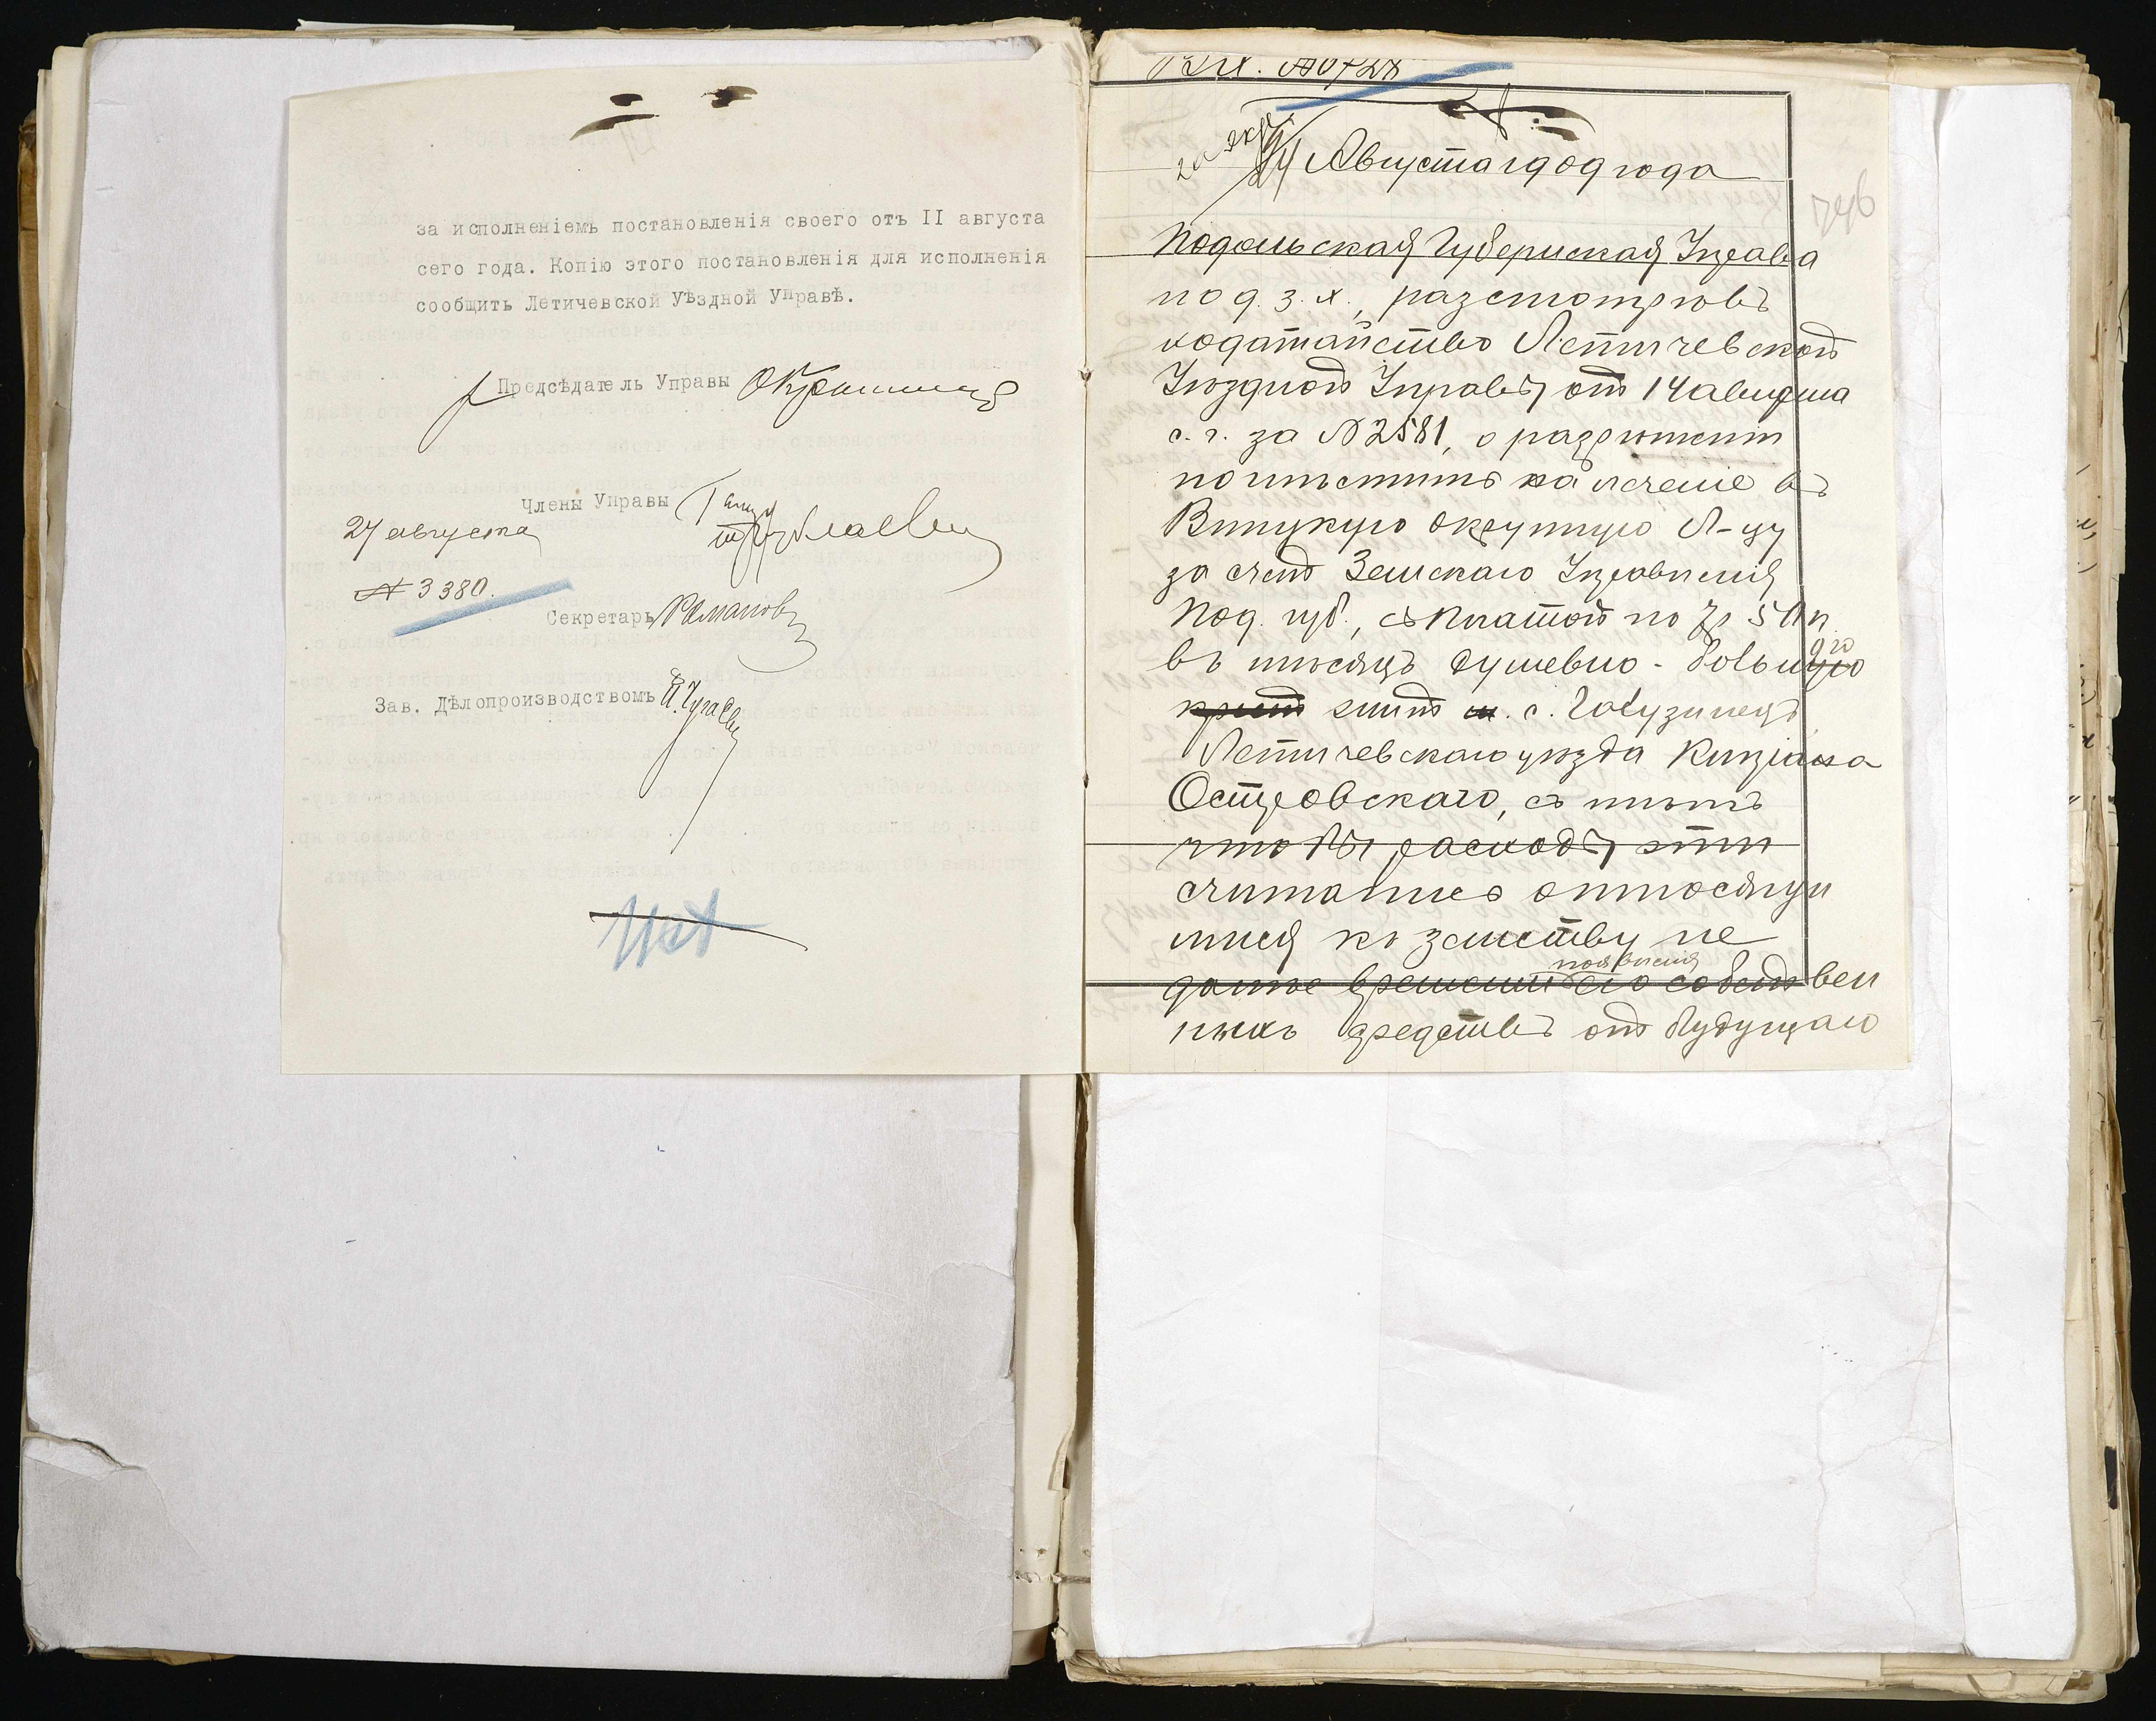 за исполненіемъ постановленія своего отъ II августа
сего года. Копію этого постановленія для исполненія
сообщить Летичевской Уѣздной Управѣ.
Предсѣдатель Управы
Члены Управы
27 августа
№ 3380.
Секретарь Романовъ
Зав. Дѣлопроизводствомъ
Августа 1909 года
746
Подольская Губернская Управа
по д. з. х., разсмотрѣвъ
ходатайство Летичевской
Уѣздной Управы отъ 14 августа
с. г. за № 2581, о разрѣшеніи
помѣстить на леченіе въ
Винницкую окружную Л-цу
за счетъ Земскаго Управленія
Под. губ., съ платой по 7 р 50 к.
въ мѣсяцъ душевно-больного
с. Голузинецъ
Летичевскаго уѣзда Кипріана
Островскаго, съ тѣмъ
чтобы расходы эти
считались относящи
мися къ земству не
далѣе времени появленія его собствен
ныхъ средствъ отъ будущаго